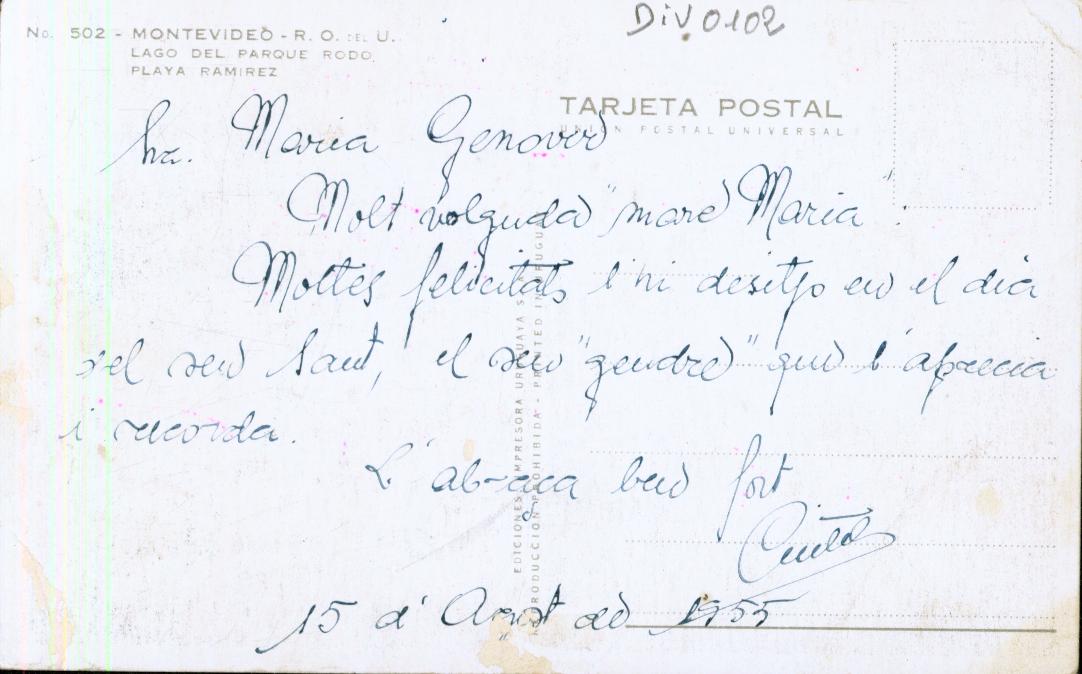 DiV 0102
No. 502 - MONTEVIDEO - R. O. DEL U.
LAGO DEL PARQUE RODO
PLAYA RAMIREZ
TARJETA POSTAL
UNION POSTAL UNIVERSAL
Sra. Maria Genover
Molt volguda "mare Maria"
Moltes felicitats l'hi desitjo en el dia
del seu Sant, el seu "gendre" que l'aprecia
i recorda.
L'abraça ben fort
15 d'Agost de 1955
EDICIONES IMPRESORA URUGUAYA S. A.
REPRODUCCION PROHIBIDA - PRINTED IN URUGUAY